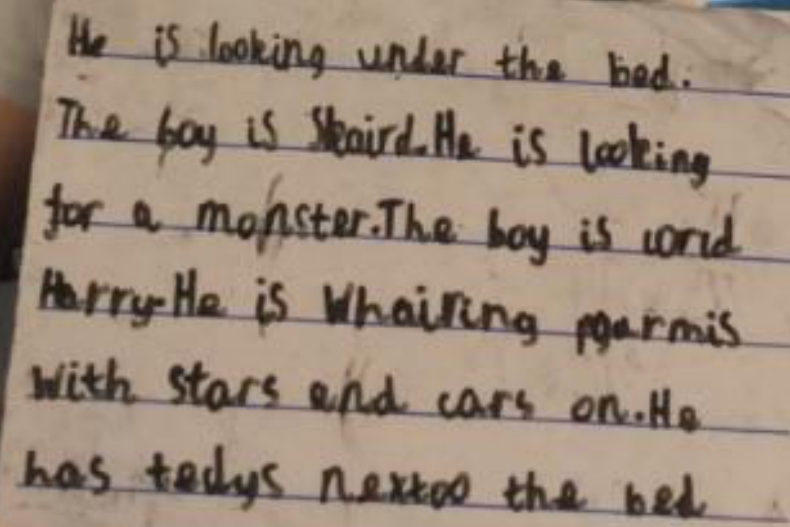 He is looking under the bed.
The boy is Skaird. He is looking
for a monster. The boy is corld
Harry. He is Whairing pgarmis
with stars and cars on. He
has tedys nextoo the bed